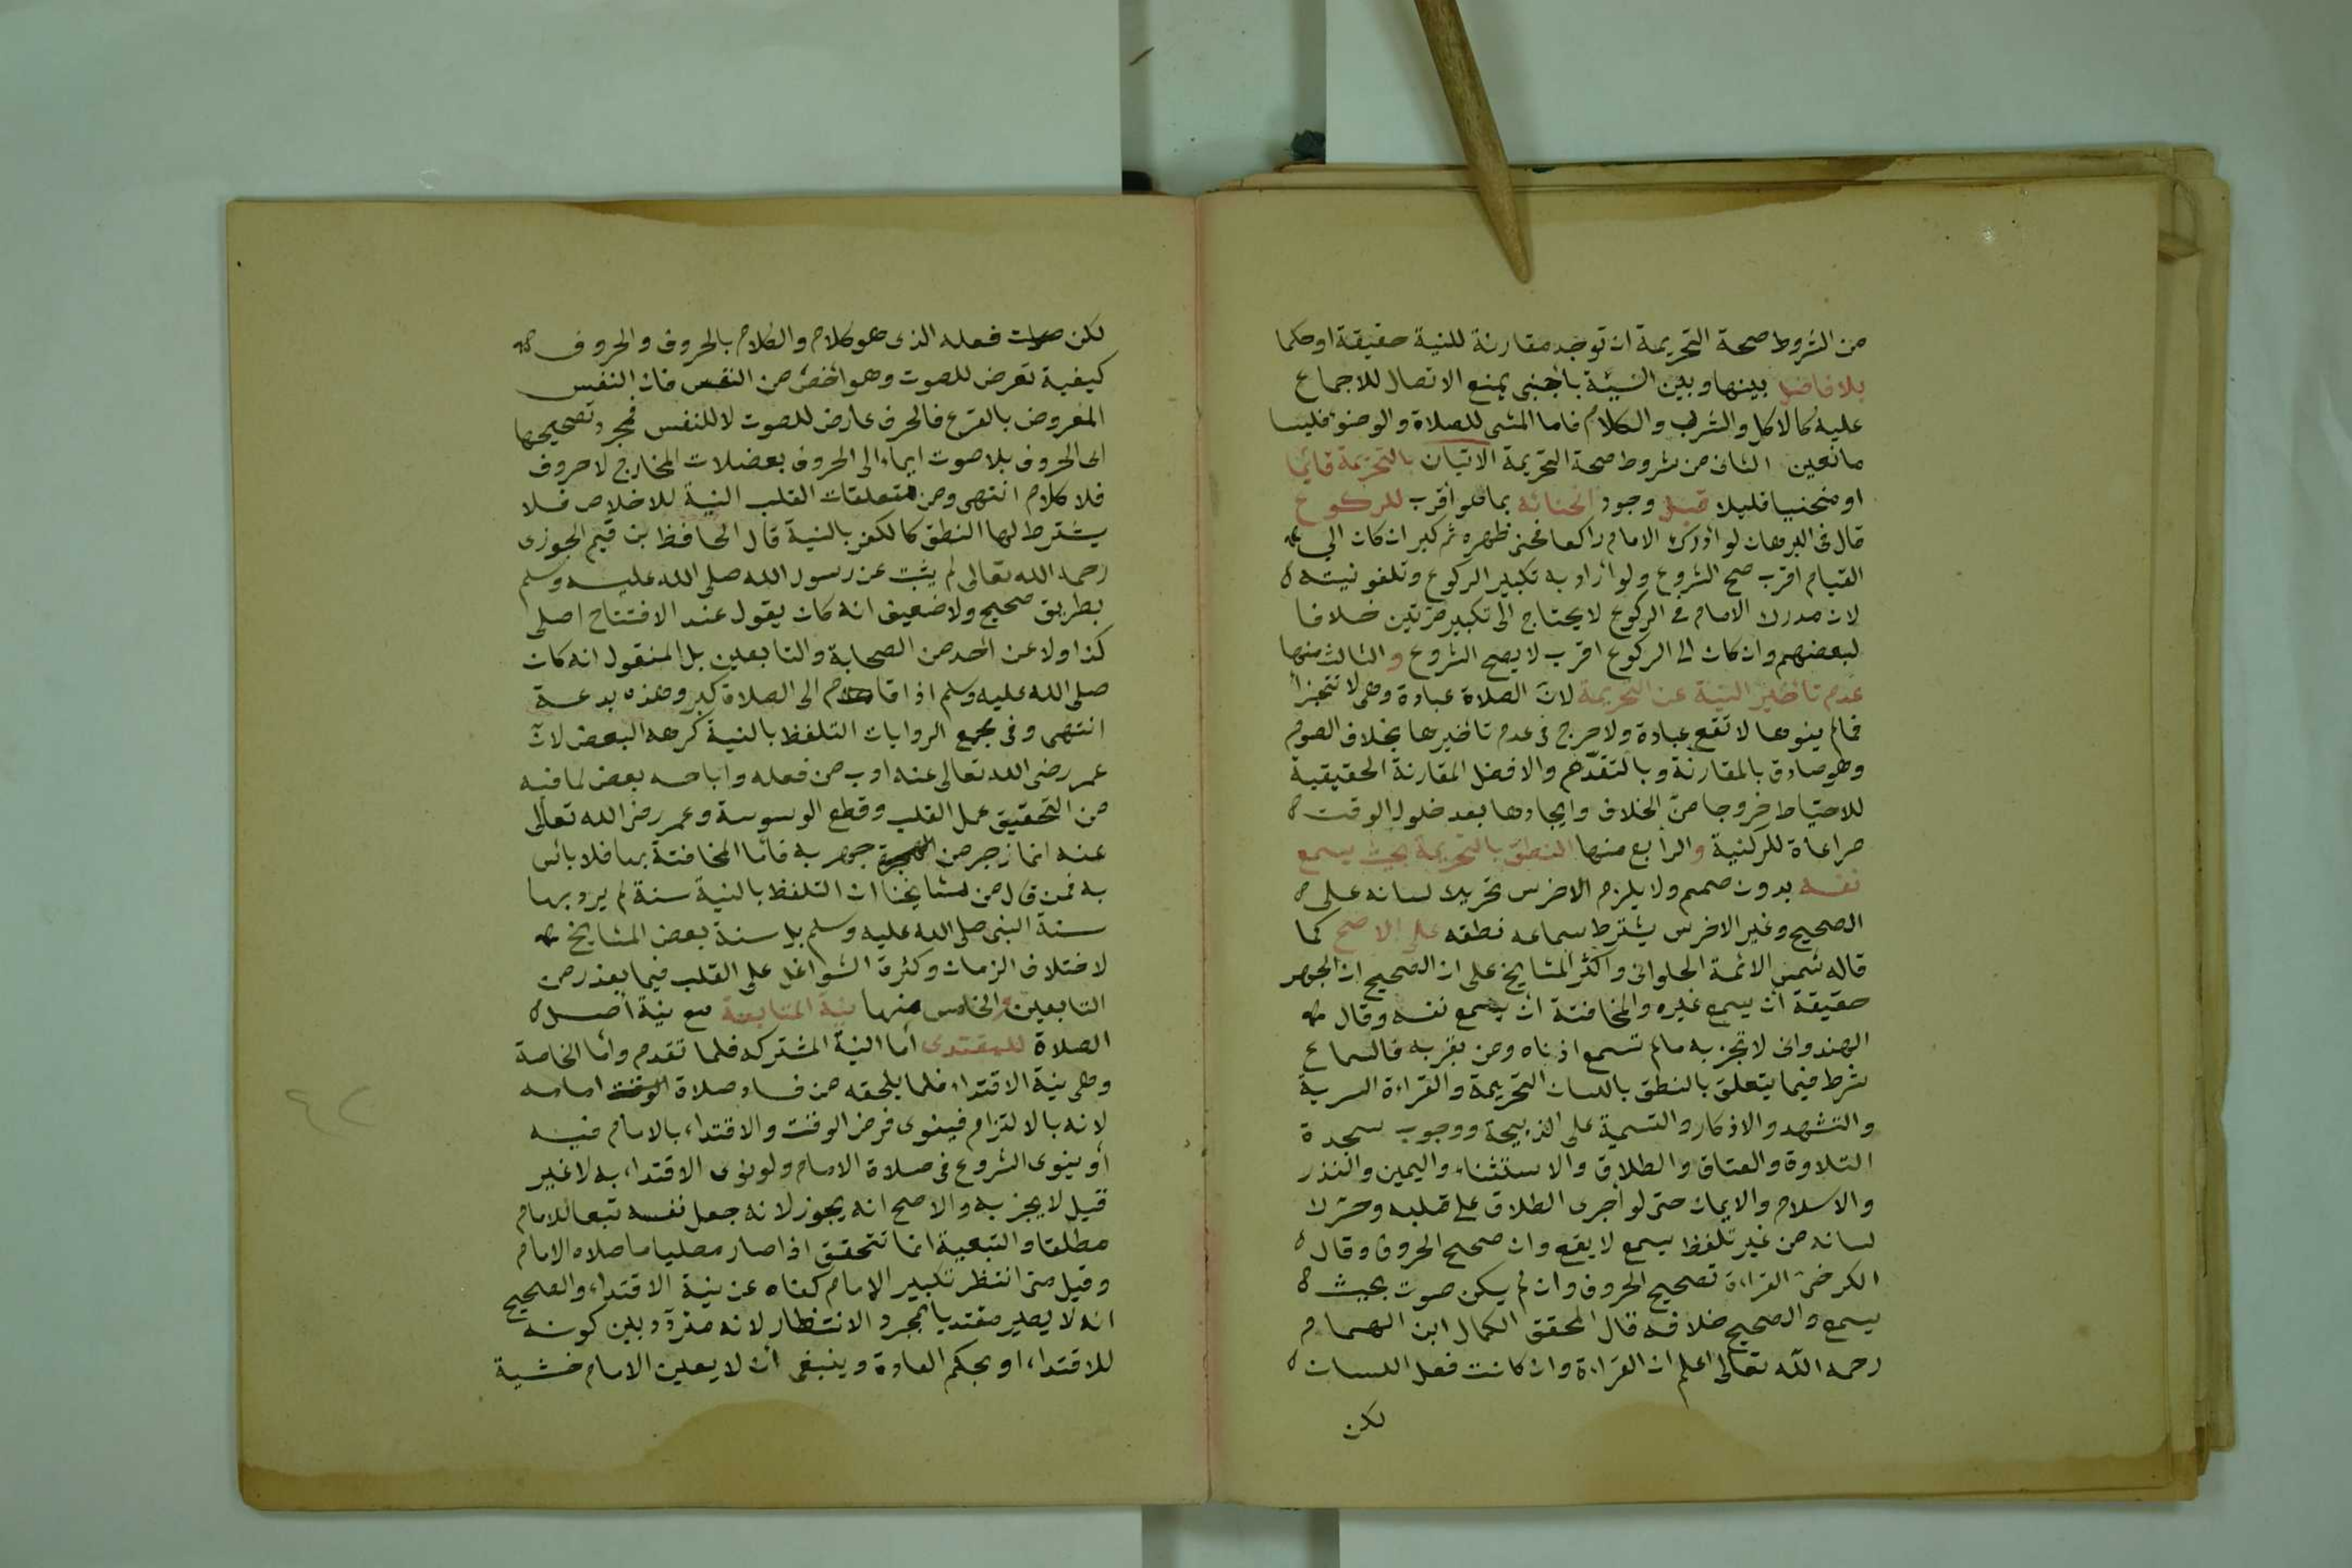 من الشروط صحة التحريمة ان توجد مقارنة للنية حقيقة او حكما
بلا فاصل بينها وبين النية باجنبى يمنع الاتصال للاجماع
عليه كالاكل والشرب والكلام فاما المشى للصلاة والوضوء فليسا
مانعين الثانى من شروط صحة التحريمة الاتيان بالتحريمة قائما
او منحنيا قليلا قبل وجود انحنائه بما هو أقرب للركوع
قال فى البرهان لو أدرك الامام راكعا فحنى ظهره ثم كبر ان كان الى
القيام اقرب صح الشروع ولو أراد به تكبير الركوع وتلغو نيته
لان مدرك الامام فى الركوع لا يحتاج الى تكبير مرتين خلافا
لبعضهم وان كان الى الركوع اقرب لا يصح الشروع والثالث منها
عدم تأخير النية عن التحريمة لان الصلاة عبادة وهى لا تتجزأ
فما لم ينوها لا تقع عبادة ولا حرج فى عدم تأخيرها بخلاف الصوم
وهو صادق بالمقارنة وبالتقدم والافضل المقارنة الحقيقية
للاحتياط خروجا من الخلاف وايجادها بعد دخول الوقت
مراعاة للركنية والرابع منها النطق بالتحريمة بحيث يسمع
نفسه بدون صمم ولا يلزم الاخرس تحريك لسانه على
الصحيح وغير الاخرس يشترط سماعه نطقه على الاصح كما
قاله شمس الائمة الحلوانى واكثر المشايخ على ان الصحيح ان الجهر
حقيقة أن يسمع غيره والمخافتة ان يسمع نفسه وقال
الهندوانى لا تجزيه مالم تسمع اذناه ومن بقربه فالسماع
شرط فيما يتعلق بالنطق باللسان التحريمة والقراءة السرية
والتشهد والاذكار والتسمية على الذبيحة ووجوب سجدة
التلاوة والعتاق والطلاق والاستثناء واليمين والنذر
والاسلام والايمان حتى لو أجرى الطلاق على قلبه وحرك
لسانه من غير تلفظ يسمع لا يقع وان صحح الحروف وقال
الكرخى القراءة تصحيح الحروف وان لم يكن صوت بحيث
يسمع والصحيح خلافه قال المحقق الكمال ابن الهمام
رحمه الله تعالى اعلم ان القراءة وان كانت فعل اللسان
لكن
لكن فعله الذى هو كلام والكلام بالحروف والحروف
كيفية تعرض للصوت وهو أخص من النفس فان النفس
المعروض بالقرع فالحرف عارض للصوت لا للنفس فمجرد تصحيحها
اى الحروف بلا صوت ايماء الى الحروف بعضلات المخارج لا حروف
فلا كلام انتهى ومن متعلقات القلب النية للاخلاص فلا
يشترط لها النطق كالكفر بالنية قال الحافظ بن قيم الجوزى
رحمه الله تعالى لم يثبت عن رسول الله صلى الله عليه وسلم
بطريق صحيح ولا ضعيف انه كان يقول عند الافتتاح اصلى
كذا ولا عن أحد من الصحابة والتابعين بل المنقول انه كان
صلى الله عليه وسلم اذا قام الى الصلاة كبر وهذه بدعة
انتهى وفى مجمع الروايات التلفظ بالنية كرهه البعض لان
عمر رضى الله تعالى عنه ادب من فعله واباحه بعض لما فيه
من التحقيق عمل القلب وقطع الوسوسة وعمر رضى الله تعالى
عنه انما زجر من جهر به فأما المخافتة بها فلا بأس
به فمن قال من مشايخنا ان التلفظ بالنية سنة لم يرد بها
سنة النبى صلى الله عليه وسلم بل سنة بعض المشايخ
لاختلاف الزمان وكثرة الشواغل على القلب فيما بعد زمن
التابعين والخامس منها نية المتابعة مع نية أصل
الصلاة للمقتدى أما النية المشتركه فلما تقدم وأما الخاصة
وهى نية الاقتداء فلما يلحقه من فساد صلاة امامه
لانه بالالتزام فينوى فرض الوقت والاقتداء بالامام فيه
أو ينوى الشروع فى صلاة الامام ولو نوى الاقتداء به لا غير
قيل لا يجزيه والاصح انه يجوز لانه جعل نفسه تبعا للامام
مطلقا والتبعية انما تتحقق اذا صار مصليا ما صلاه الامام
وقيل متى انتظر تكبير الامام كفاه عن نية الاقتداء والصحيح
انه لا يصير مقتديا بمجرد الانتظار لانه متردد بين كونه
للاقتداء او بحكم العادة وينبغى أن لا يعين الامام خشية
٤٢